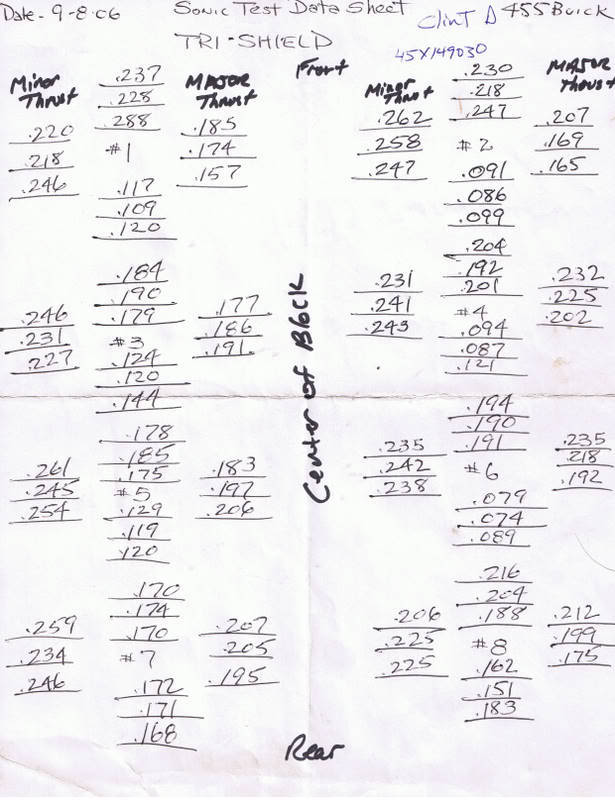 Date- 9-8-06 Sonic Test Data Sheet Clint D 455 Buick
TRI-SHIELD 45X149030
Front
Minor Thrust
MAJOR Thrust
.237
.228
.288
.220
.218
.246
#1
.185
.174
.157
.117
.109
.120
.184
.190
.179
.246
.231
.227
#3
.177
.186
.191
.124
.120
.144
.178
.185
.175
.261
.245
.254
#5
.183
.197
.206
.129
.119
.120
.170
.174
.170
.259
.234
.246
#7
.207
.205
.195
.172
.171
.168
Center of Block
Minor Thrust
MAJOR Thrust
.230
.218
.247
.262
.258
.247
#2
.207
.169
.165
.091
.086
.099
.204
.192
.201
.231
.241
.243
#4
.232
.225
.202
.094
.087
.121
.194
.190
.191
.235
.242
.238
#6
.235
.218
.192
.079
.074
.089
.216
.204
.188
.206
.225
.225
#8
.212
.199
.175
.162
.151
.183
Rear